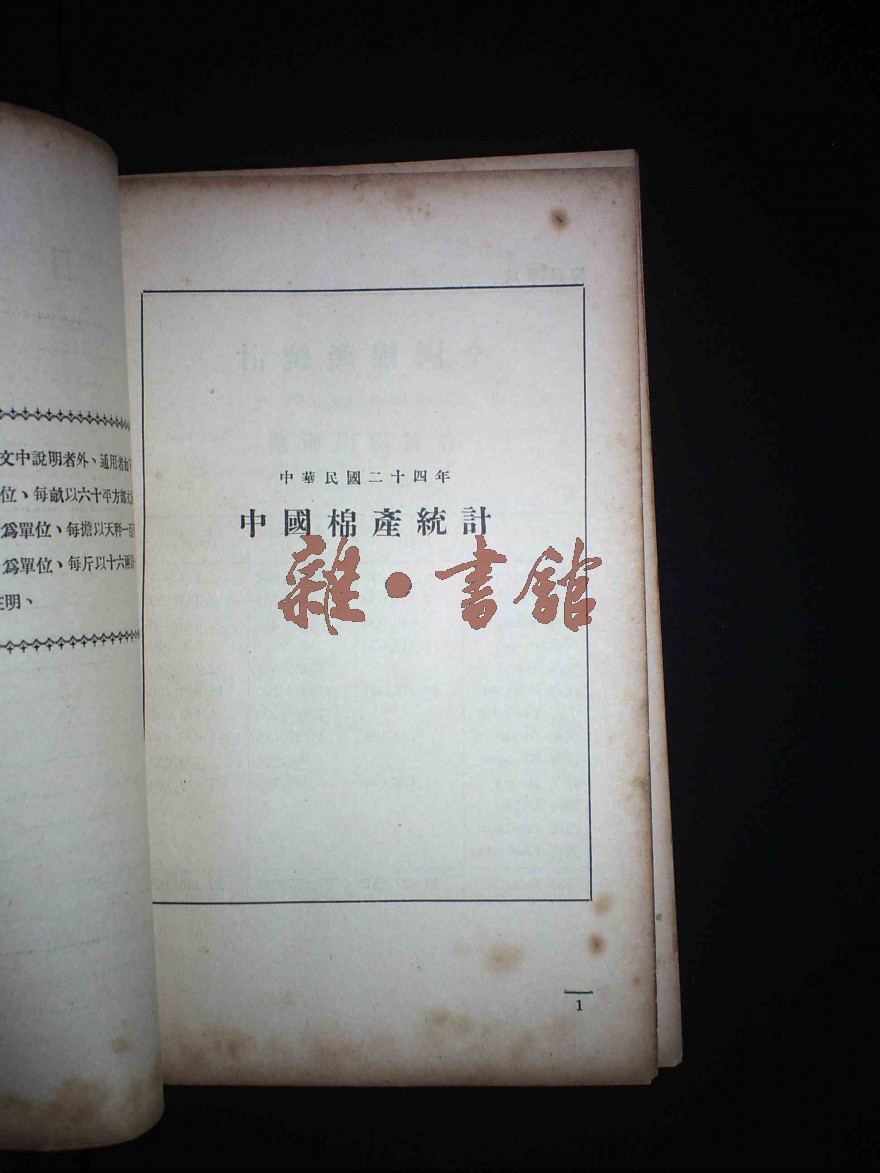 文中說明者外、通用者如
位、每畝以六十平方
爲單位、每擔以天秤一百
爲單位、每斤以十六兩計
註明、
中華民國二十四年
中國棉產統計
雜·書館
1